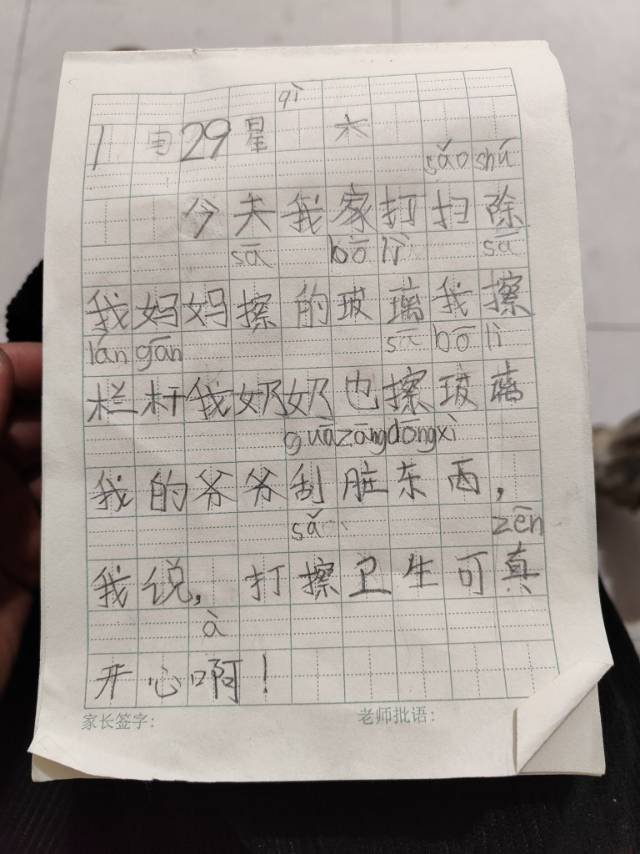 qì
1 月 29 星 六
sǎo shú
今天我家打扫除
sā bō lì sā
我妈妈擦的玻璃我擦
lán gān sā bō lì
栏杆我奶奶也擦玻璃
guā zāng dong xì
我的爷爷刮脏东西，
sǎ zēn
我说，打擦卫生可真
à
开心啊！
家长签字： 老师批语：